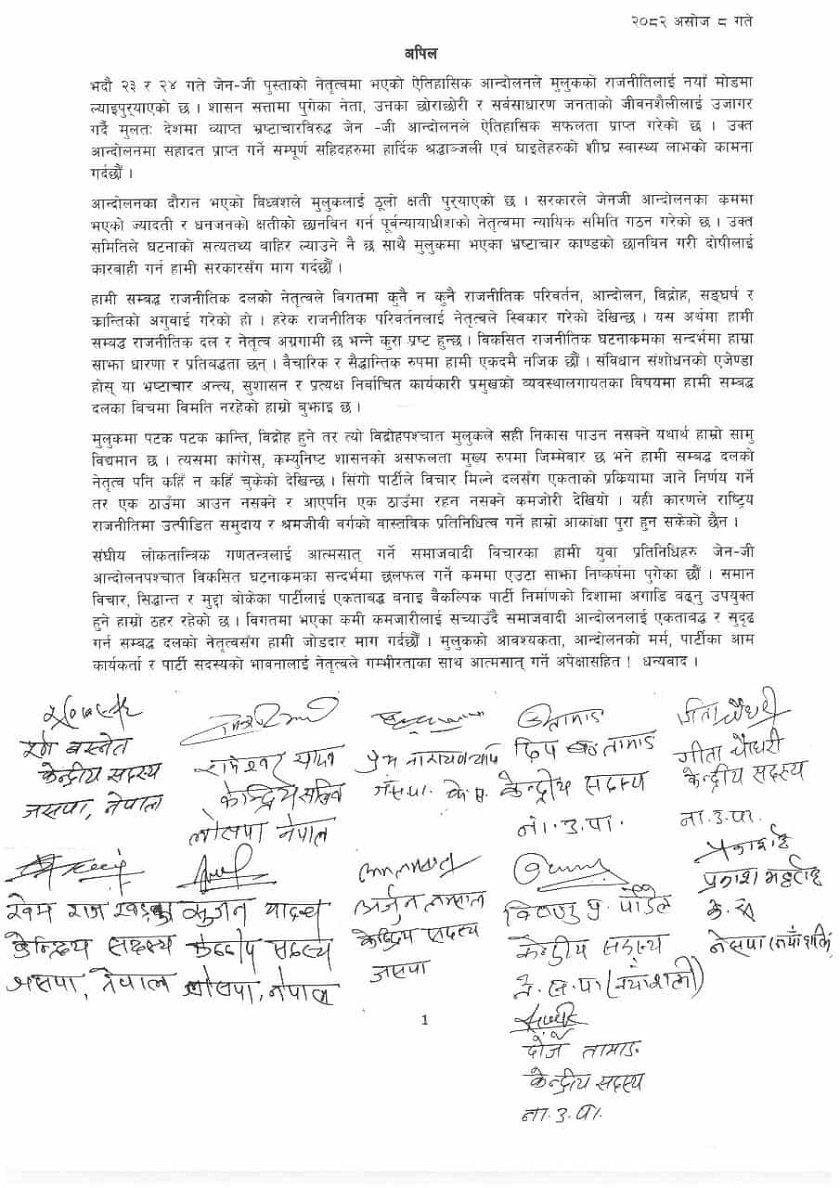 २०८२ असोज ८ गते
अपिल
भदौ २३ र २४ गते जेन-जी पुस्ताको नेतृत्वमा भएको ऐतिहासिक आन्दोलनले मुलुकको राजनीतिलाई नयाँ मोडमा
ल्याइपुर्‍याएको छ । शासन सत्तामा पुगेका नेता, उनका छोराछोरी र सर्वसाधारण जनताको जीवनशैलीलाई उजागर
गर्दै मुलतः देशमा व्याप्त भ्रष्टाचारविरुद्ध जेन -जी आन्दोलनले ऐतिहासिक सफलता प्राप्त गरेको छ । उक्त
आन्दोलनमा सहादत प्राप्त गर्ने सम्पूर्ण सहिदहरुमा हार्दिक श्रद्धाञ्जली एवं घाइतेहरुको शीघ्र स्वास्थ्य लाभको कामना
गर्दछौँ ।
आन्दोलनका दौरान भएको विध्वंशले मुलुकलाई ठूलो क्षती पुर्‍याएको छ । सरकारले जेनजी आन्दोलनका क्रममा
भएको ज्यादती र धनजनको क्षतीको छानविन गर्न पूर्वन्यायाधीशको नेतृत्वमा न्यायिक समिति गठन गरेको छ । उक्त
समितिले घटनाको सत्यतथ्य वाहिर ल्याउने नै छ साथै मुलुकमा भएका भ्रष्टाचार काण्डको छानविन गरी दोषीलाई
कारबाही गर्न हामी सरकारसँग माग गर्दछौँ ।
हामी सम्बद्ध राजनीतिक दलको नेतृत्वले विगतमा कुनै न कुनै राजनीतिक परिवर्तन, आन्दोलन, विद्रोह, सङ्घर्ष र
क्रान्तिको अगुवाई गरेको हो । हरेक राजनीतिक परिवर्तनलाई नेतृत्वले स्विकार गरेको देखिन्छ । यस अर्थमा हामी
सम्बद्ध राजनीतिक दल र नेतृत्व अग्रगामी छ भन्ने कुरा प्रष्ट हुन्छ । विकसित राजनीतिक घटनाक्रमका सन्दर्भमा हाम्रा
साभा धारणा र प्रतिबद्धता छन् । वैचारिक र सैद्धान्तिक रुपमा हामी एकदमै नजिक छौँ । संविधान संशोधनको एजेण्डा
होस् या भ्रष्टाचार अन्त्य, सुशासन र प्रत्यक्ष निर्वाचित कार्यकारी प्रमुखको व्यवस्थालगायतका विषयमा हामी सम्बद्ध
दलका विचमा विमति नरहेको हाम्रो बुझाइ छ ।
मुलुकमा पटक पटक क्रान्ति, विद्रोह हुने तर त्यो विद्रोहपश्चात मुलुकले सही निकास पाउन नसक्ने यथार्थ हाम्रो सामु
विद्यमान छ । त्यसमा कांगेस, कम्युनिष्ट शासनको असफलता मुख्य रुपमा जिम्मेवार छ भने हामी सम्बद्ध दलको
नेतृत्व पनि कहिँ न कहिँ चुकेको देखिन्छ । सिंगो पार्टीले विचार मिल्ने दलसँग एकताको प्रक्रियामा जाने निर्णय गर्ने
तर एक ठाउँमा आउन नसक्ने र आएपनि एक ठाउँमा रहन नसक्ने कमजोरी देखियो । यही कारणले राष्ट्रिय
राजनीतिमा उत्पीडित समुदाय र श्रमजीवी वर्गको वास्तविक प्रतिनिधित्व गर्ने हाम्रो आकांक्षा पुरा हुन सकेको छैन ।
संघीय लोकतान्त्रिक गणतन्त्रलाई आत्मसात् गर्ने समाजवादी विचारका हामी युवा प्रतिनिधिहरु जेन-जी
आन्दोलनपश्चात विकसित घटनाक्रमका सन्दर्भमा छलफल गर्ने क्रममा एउटा साभा निष्कर्षमा पुगेका छौँ । समान
विचार, सिद्धान्त र मुद्दा बोकेका पार्टीलाई एकताबद्ध बनाइ वैकल्पिक पार्टी निर्माणको दिशामा अगाडि वढ्नु उपयुक्त
हुने हाम्रो ठहर रहेको छ । विगतमा भएका कमी कमजारीलाई सच्याउँदै समाजवादी आन्दोलनलाई एकताबद्ध र सुदृढ
गर्न सम्बद्ध दलको नेतृत्वसँग हामी जोडदार माग गर्दछौँ । मुलुकको आवश्यकता, आन्दोलनको मर्म, पार्टीका आम
कार्यकर्ता र पार्टी सदस्यको भावनालाई नेतृत्वले गम्भीरताका साथ आत्मसात् गर्ने अपेक्षासहित ! धन्यवाद ।
गीता चौधरी
बस्नेत
केन्द्रीय सदस्य
जसपा, नेपाल
रामेश्वर यादव
लोसपा नेपाल
प्रेम नारायण
जसपा. के.स.
तामाङ
केन्द्रीय सदस्य
ना.उ.पा.
गीता चौधरी
केन्द्रीय सदस्य
ना.उ.पा.
खेम राज खड्का
केन्द्रिय सदस्य
जसपा, नेपाल
सुजन यादव
केन्द्रीय सदस्य
लोसपा, नेपाल
अर्जुन
केन्द्रिय सदस्य
जसपा
विष्णु प्र. पौडेल
केन्द्रीय सदस्य
ने.स.पा (नयाँशक्ति)
प्रकाश
के.स.
नेसपा (नयाँशक्ति)
1
दोर्जे तामाङ
केन्द्रीय सदस्य
ना.उ.पा.